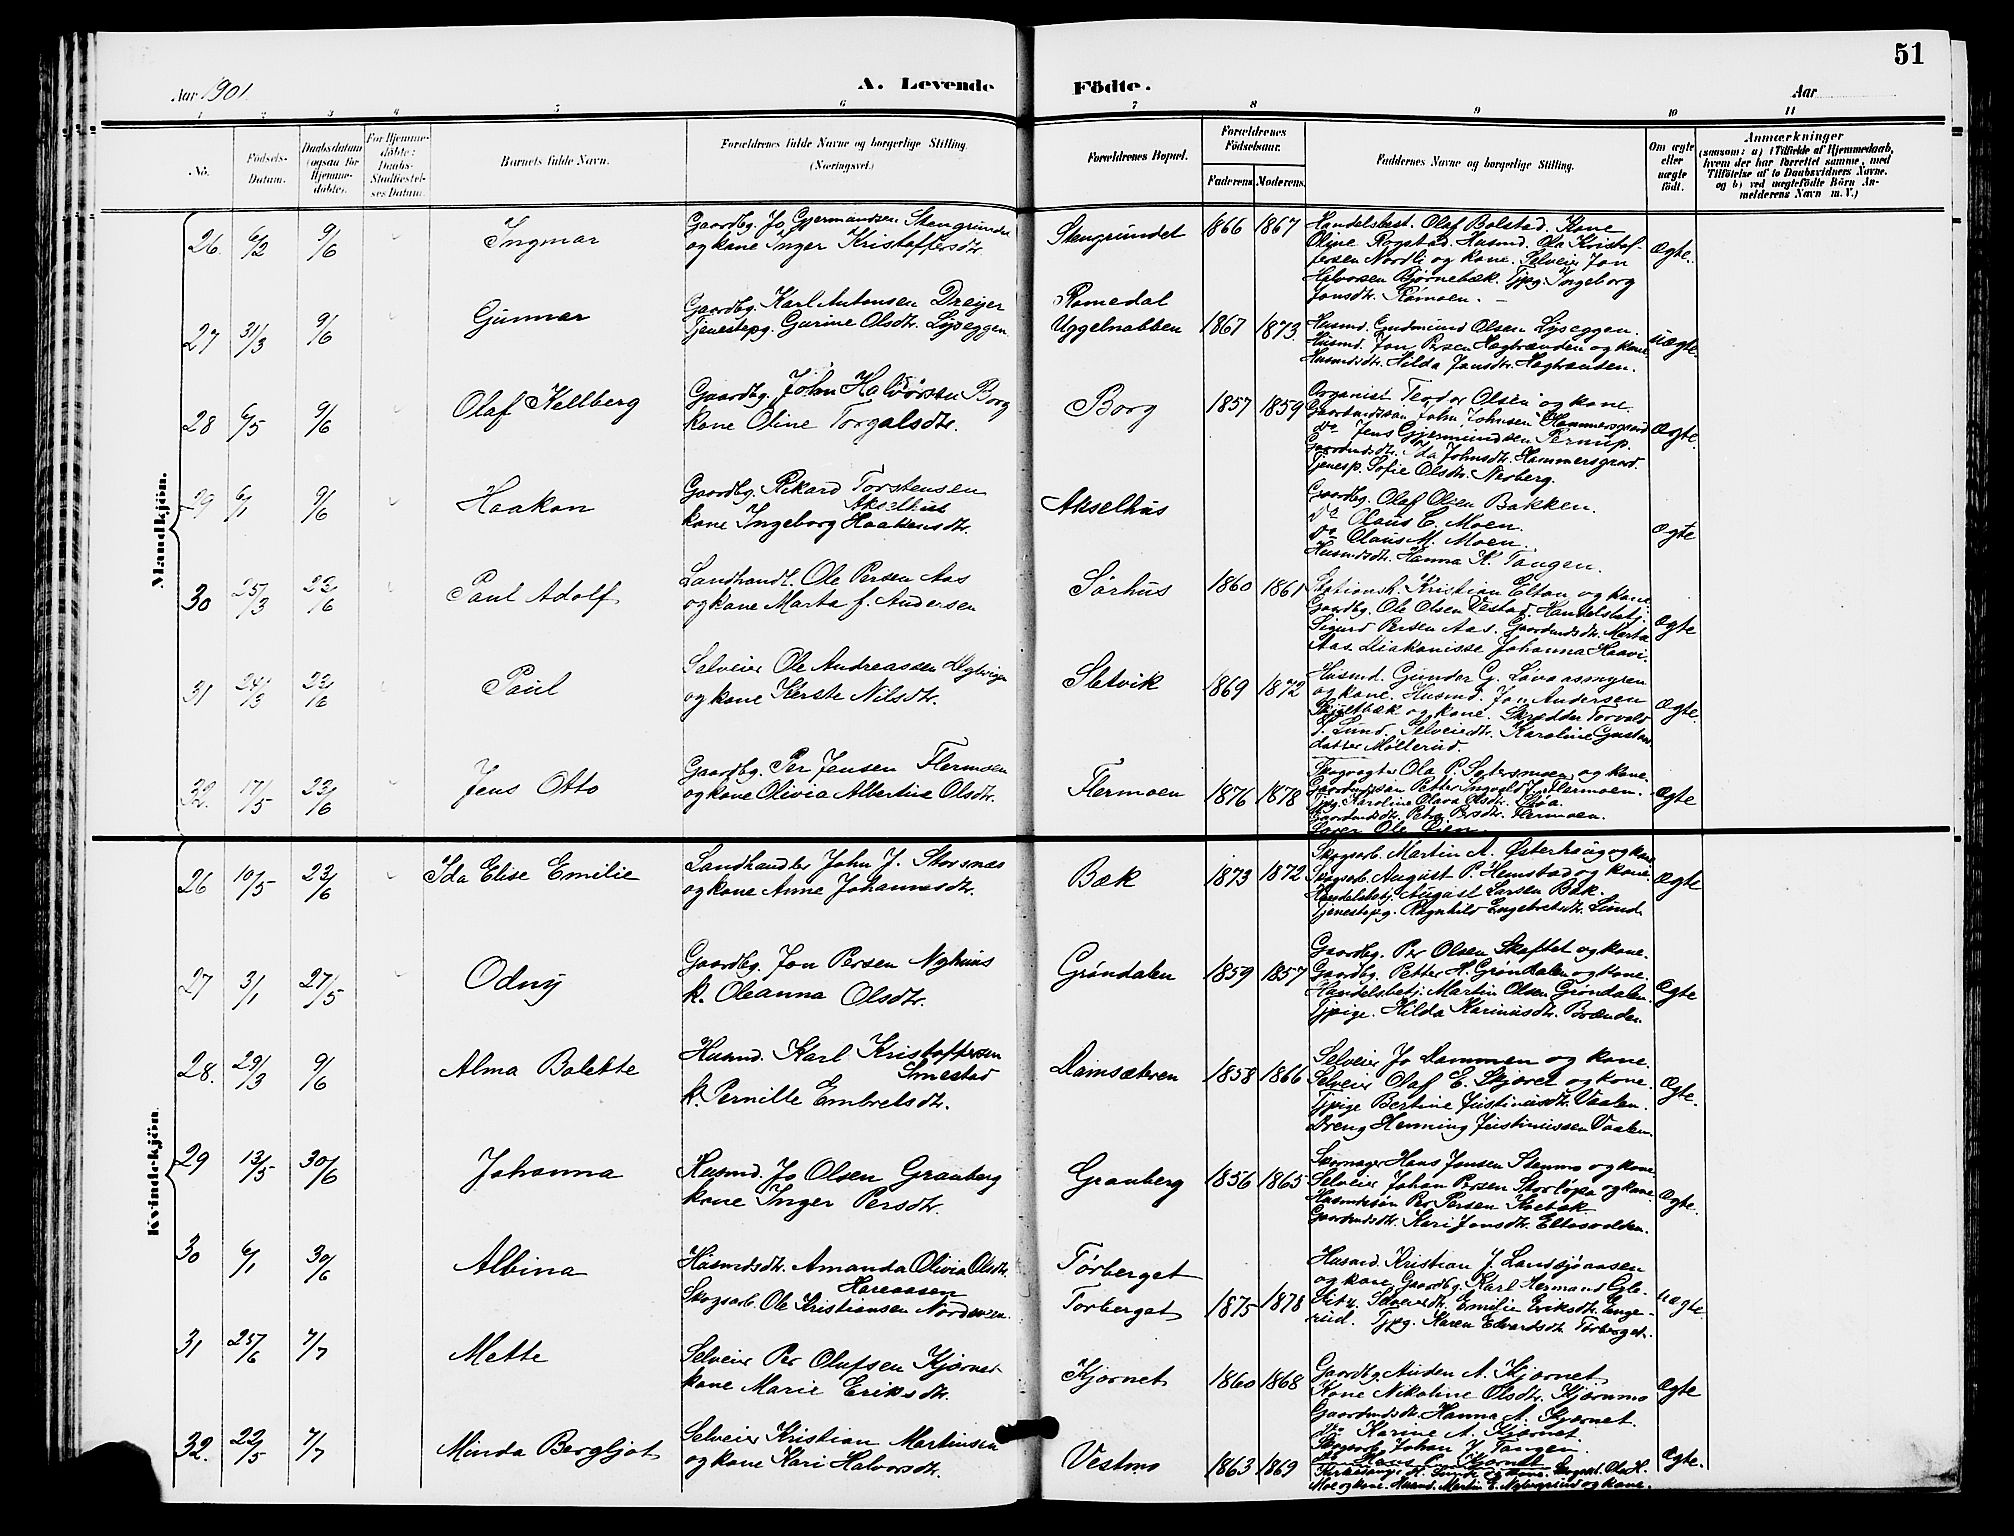 51
Aar 1901.
A. Levende
Födte.
Aar
1 2 3 4 5 6 7 8 9 10 11
No.
Födsels-
Datum.
Daabsdatum
(ogsaa for
Hjemme-
döbte).
For Hjemme-
döbte:
Daabs-
Stadfæstel-
ses Datum.
Barnets fulde Navn.
Forældrenes fulde Navne og borgerlige Stilling.
(Næringsvei.)
Forældrenes Bopæl.
Forældrenes
Födselsaar.
Faderens Moderens
Faddernes Navne og borgerlige Stilling.
Om ægte
eller
uægte
födt.
Anmærkninger
(saasom: a) i Tilfælde af Hjemmedaab,
hvem der har forrettet samme, med
Tilföielse af to Daabsvidners Navne.
og b) ved uægtefödte Börn An-
melderens Navn m. V.)
Mandkjön.
26. 6/2 9/6 Ingmar
Gaardbg. Jo Gjermundsen Stengrundet
og kone Inger Kristoffersdtr.
Stengrundet 1866 1867
Handelsbest. Olaf Bolstad. Kone
Oline Rogstad. Husmd. Ola Kristof-
fersen Nordli og kone. Selveier Jon
Halvorsen Bjørnebæk. Tjpg. Ingeborg
Jonsdtr. Rømoen.
Ægte.
27 31/3 9/6 Gunnar
Gaardbg. Karl Antonsen Dreyer
Tjenestepg. Gurine Olsdtr. Lyseggen
Romedal
Uggelnabben 1867 1873.
Husmd. Gudmund Olsen Lyseggen.
Husmd. Jon Persen Hagbrænden og kone.
Husmdsdtr. Hilda Jonsdtr. Hagbrænden.
uægte.
28 6/5 9/6 Olaf Kellberg
Gaardbg. John Halvorsen Borg
kone Oline Torgalsdtr.
Borg 1857 1859
Organist Teodor Olsen og kone.
Gaardmdssøn John Johnsen Hammersgaard
do Jens Gjermundsen Pernup.
Gaardmdsdtr. Ida Johnsdtr. Hammersgaard.
Tjenesp. Sofie Olsdtr. Norberg.
Ægte.
29 6/1 9/6 Haakon
Gaardbg. Rikard Torstensen
Akselhus
kone Ingeborg Haakensdtr.
Akselhus
Gaardbg. Olaf Olsen Bakken.
do Olaus C. Moen.
do Olaus M. Moen.
Husmdsdtr. Hanna K. Tangen.
Ægte
30 25/3 23/6 Paul Adolf
Landhandl. Ole Persen Aas
og kone Marta f. Andersen
Sørhus 1860 1861
Stationsh. Kristian Elton og kone.
Gaardbg. Ole Olsen Vestad. Handelsbetj.
Sigurd Persen Aas. Gaardmdsdtr. Marta
Aas. Diakonisse Johanna Haavi.
Ægte
31 24/3 23/6 Paul
Selveier Ole Andreassen
og kone Kerste Nilsdtr.
Sletvik 1869 1872
Husmd. Gunder G. Løvaasmyren
og kone. Husmd. Jon Andersen
Skjeltbæk og kone. Skrædder Torvald
Lund. Selveierdtr. Karoline Gustav
datter Møllerud.
Ægte.
32. 17/5 23/6 Jens Otto
Gaardbg. Per Jensen Flermoen
og kone Olivia Albertine Olsdtr.
Flermoen 1876 1878
Skogvogter Ola P. Setersmoen og kone.
Gaardmdssøn Petter Ingvald J. Flermoen.
Tjpg. Karoline Olava Olsdtr. Støa.
Gaardmdsdtr. Petra Persdtr. Flermoen.
Ægte
Kvindekjön.
26 10/5 23/6 Ida Elise Emilie
Landhandler John J. Storsnæs
og kone Anne Johannesdtr.
Bæk 1873 1872
Skogsarb. Martin A. Østerhaug og kone
Skogsarb. August P. Hemstad og kone.
Handelsbetj. August Larsen Bæk.
Tjenestepg. Ragnhild Engebretsdtr. Lund
Ægte
27 3/1 27/5 Odny
Gaardbg. Jon Persen Nyhuus
k. Oleanna Olsdtr.
Grøndalen 1859 1857
Gaardbg. Per Olsen Skaftet og kone.
Gaardbg. Petter H. Grøndalen og kone.
Handelsbetj. Martin Olsen Grøndalen.
Tjpige. Hilda Karinusdtr. Brænden
Ægte
28. 29/3 9/6 Alma Bolette
Husmd. Karl Kristoffersen
Smestad
k. Pernille Embretsdtr.
Damsæteren 1858 1866
Selveier Jo Dammen og kone.
Selveier Olaf E. Skjæret og kone.
Tjpige Bertine Justinusdtr. Vaalen.
Dreng Henning Justinussen Vaalen.
Ægte.
29 13/5 30/6 Johanna
Husmd. Jo Olsen Granberg
kone Inger Persdtr.
Granberg 1856 1865
Skomager Hans Jonsen Stenmo og kone.
Selveier Johan Persen Storløpa og kone.
Husmdssøn Per Persen
Gaardmdsdtr. Kari Jonsdtr.
Ægte.
30 6/1 30/6 Albina
Husmdsdtr. Amanda Olivia Olsdtr.
Hareaasen
Skogsarb. Ole Kristiansen Nordmoen.
Tørberget
Tørberget 1875 1878
Husmd. Kristian J. Landsjøaasen
og kone. Gaardbg. Karl Hermand
Selveierdtr. Emilie Eriksdtr. Enge-
rud. Tjpg. Karen Edvardsdtr. Tørberget.
uægte
31 25/6 7/7 Mette
Selveier Per Olufsen Kjørnet
kone Marie Eriksdtr.
Kjørnet 1860 1868
Gaardbg. Auden A. Kjørnet
Kone Nikoline Olsdtr. Kjørnmo
Gaardmdsdtr. Hanna A. Kjørnet.
do Karine A. Kjørnet.
Ægte
32. 22/5 7/7 Minda Bergljot
Selveier Kristian Martinsen
og kone Kari Halvorsdtr.
Vestmo 1863 1869
Skogsarb. Johan Tangen.
Kirkesang.
Moe og kone. Husmd. Martin E. Nybergsund og kone.
Ægte.